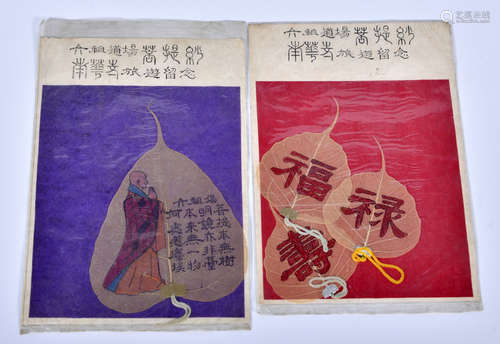 六祖道場菩提紗
南華寺旅遊留念
六祖偈
菩提本無樹
明鏡亦非臺
本來無一物
何處惹塵埃
六祖道場菩提紗
南華寺旅遊留念
福
禄
壽
易拍全球